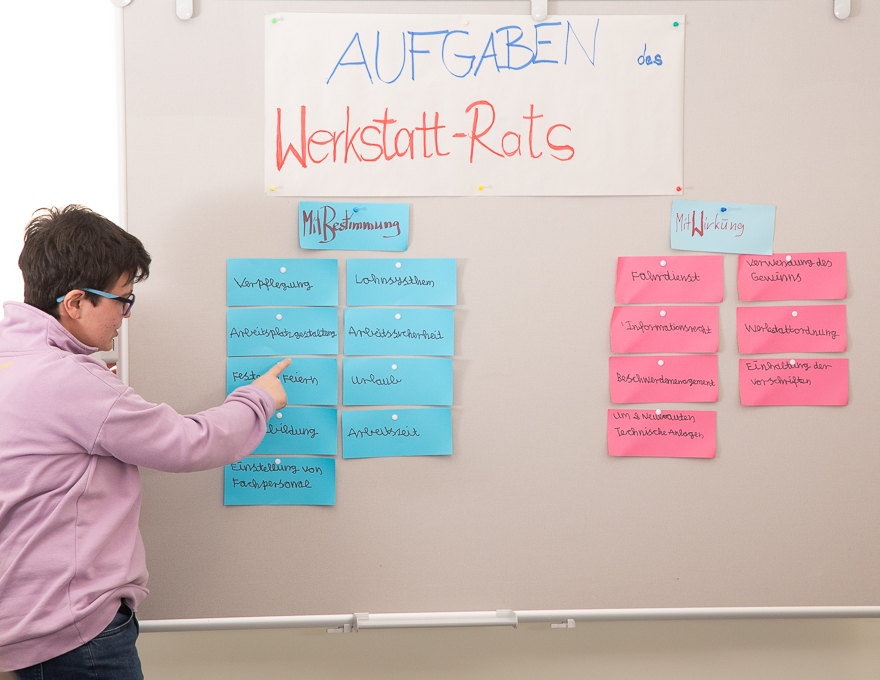 AUFGABEN des
Werkstatt-Rats
MitBestimmung
MitWirkung
Verpflegung
Lohnsysthem
Arbeitsplatzgestaltung
Arbeitssicherheit
Fest Feiern
Urlaub
bildung
Arbeitszeit
Einstellung von
Fachpersonal
Fahrdienst
Verwendung des
Gewinns
Werkstattordnung
Einhaltung der
Vorschriften
Um & Neubauten
Technische Anlagen